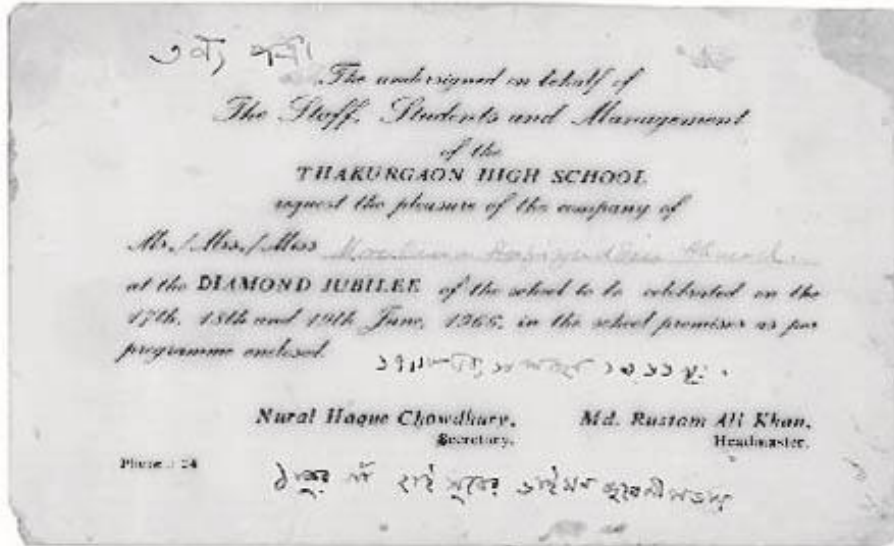 The undersigned on behalf of
The Staff, Students and Management
of the
THAKURGAON HIGH SCHOOL
request the pleasure of the company of
Mr./Mrs./Miss
at the DIAMOND JUBILEE of the school to be celebrated on the
17th, 18th and 19th June, 1966, in the school premises as per
programme enclosed.
Nural Haque Chowdhury, Md. Rustam Ali Khan,
Secretary. Headmaster.
Phone : 24
ঠাকুর গাঁ হাই স্কুলের